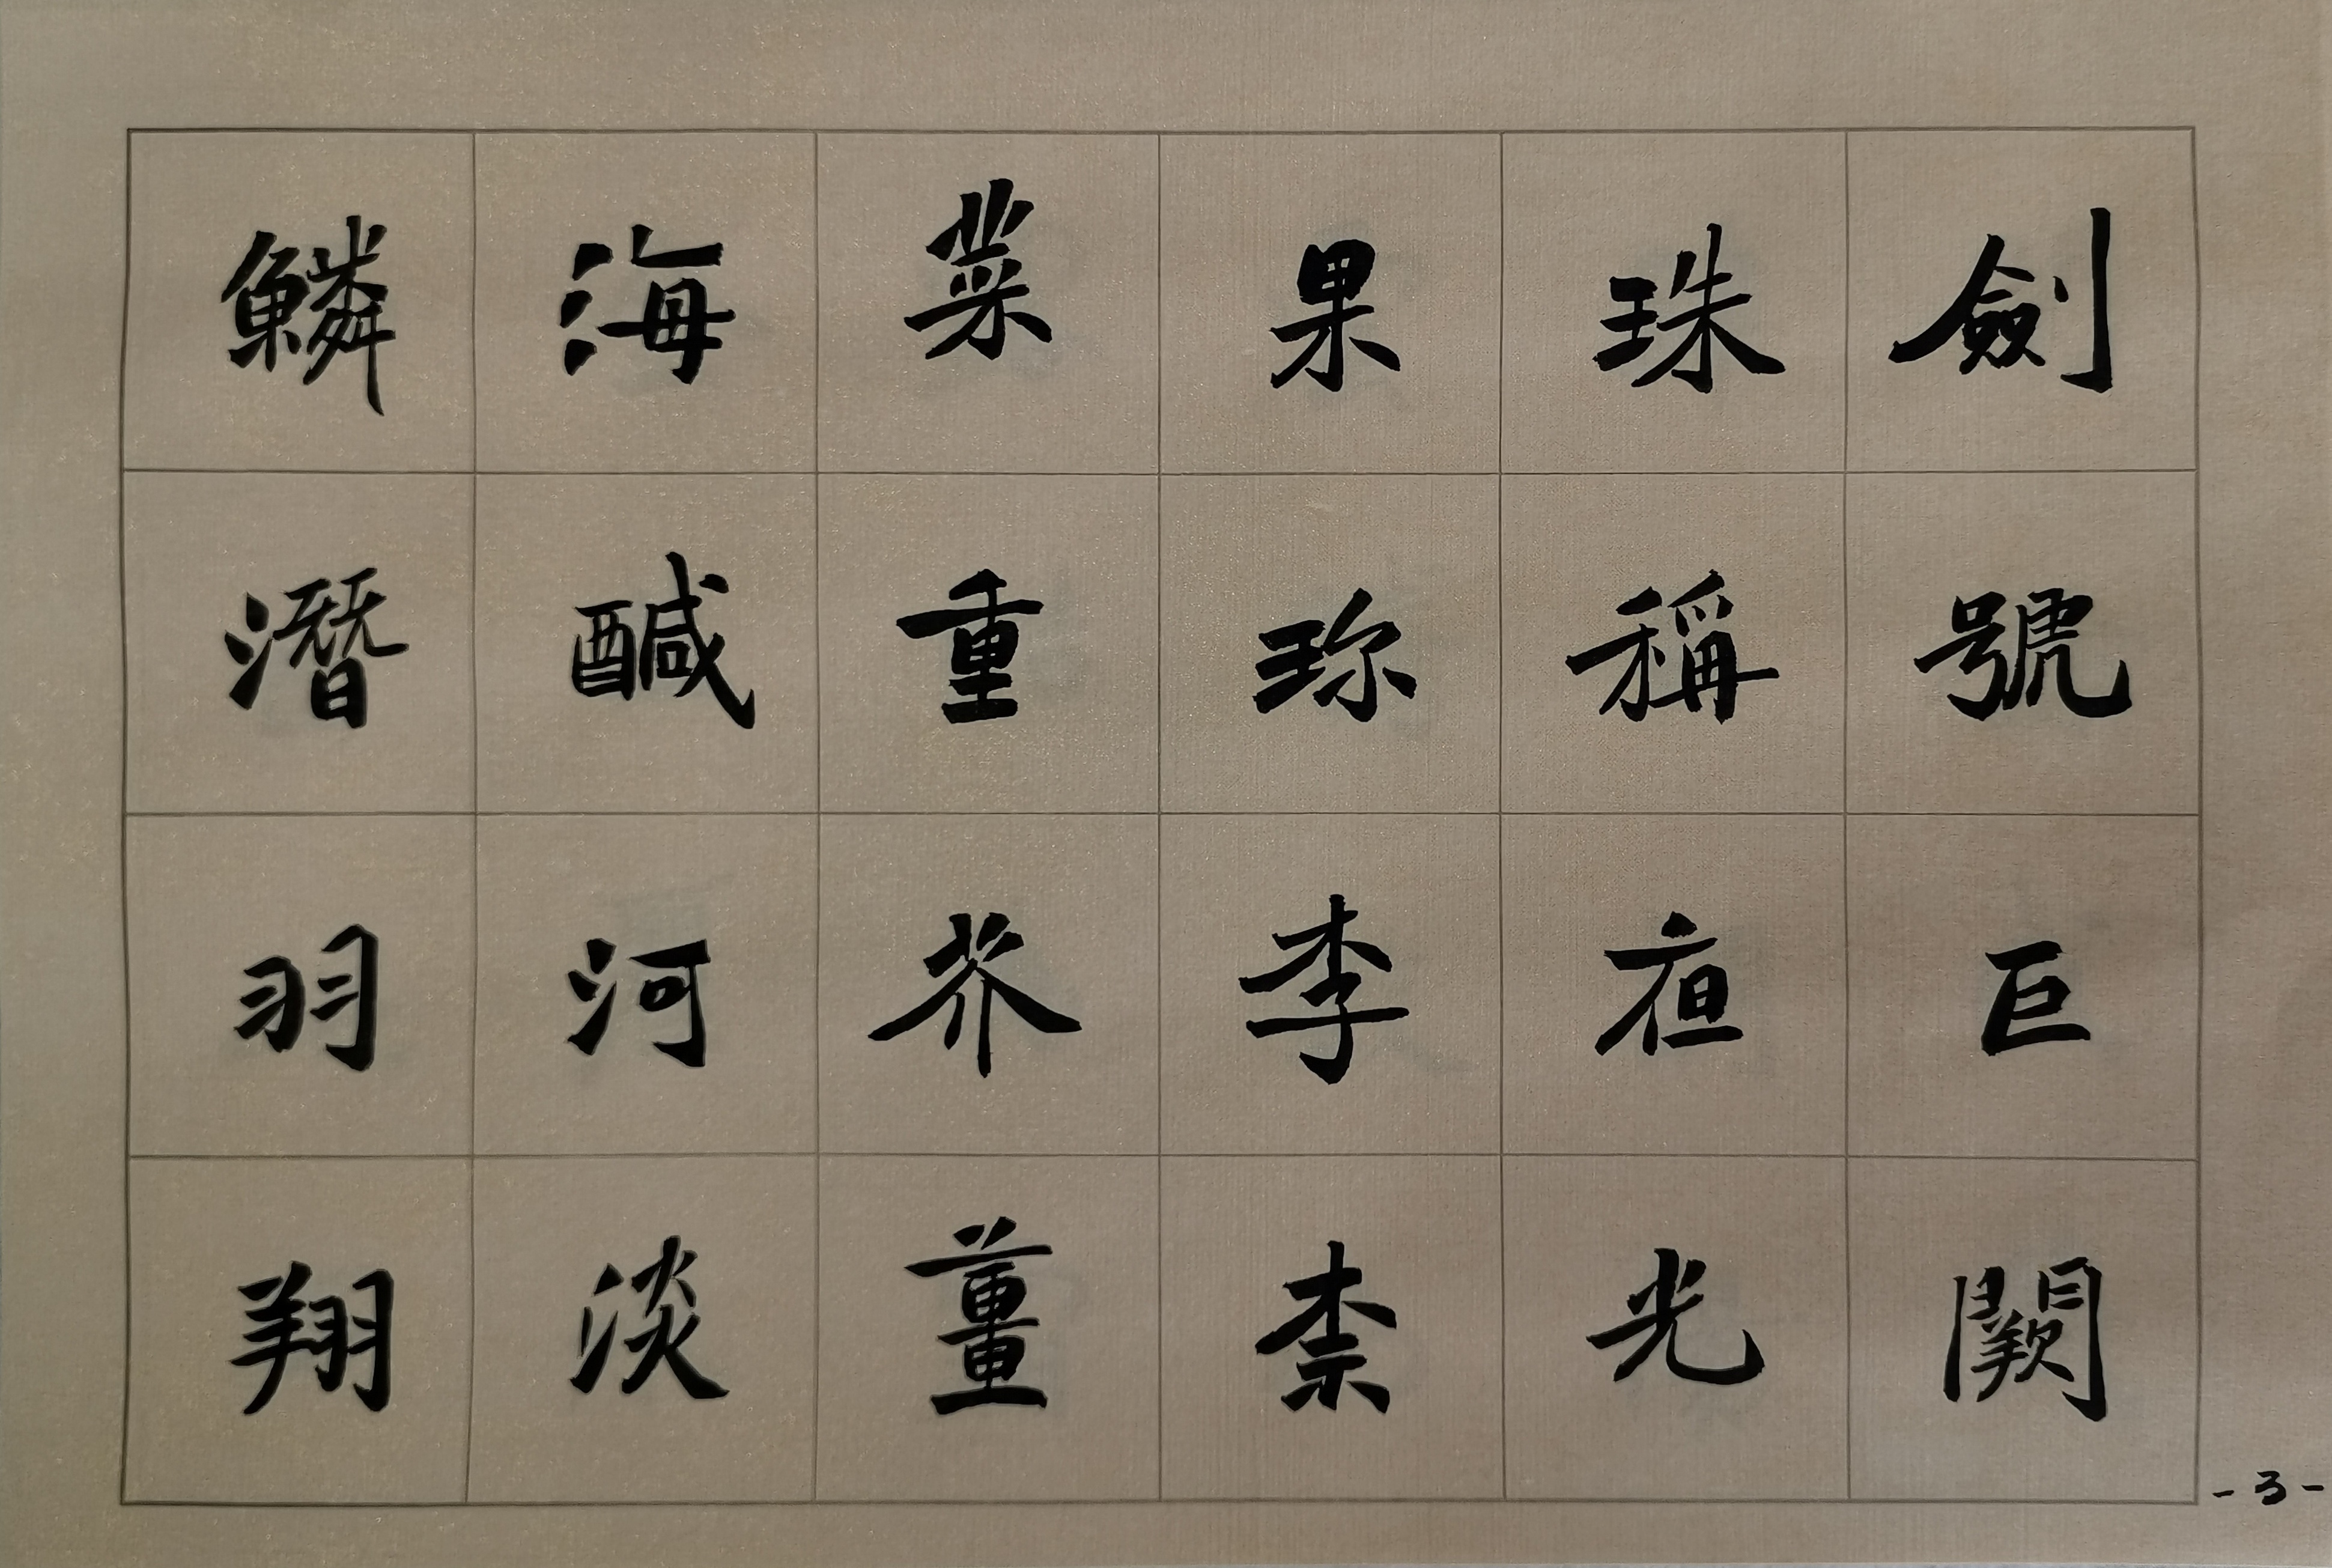 劍號巨闕
珠稱亱光
果珎李柰
菜重芥薑
海醎河淡
鱗潛羽翔
-3-